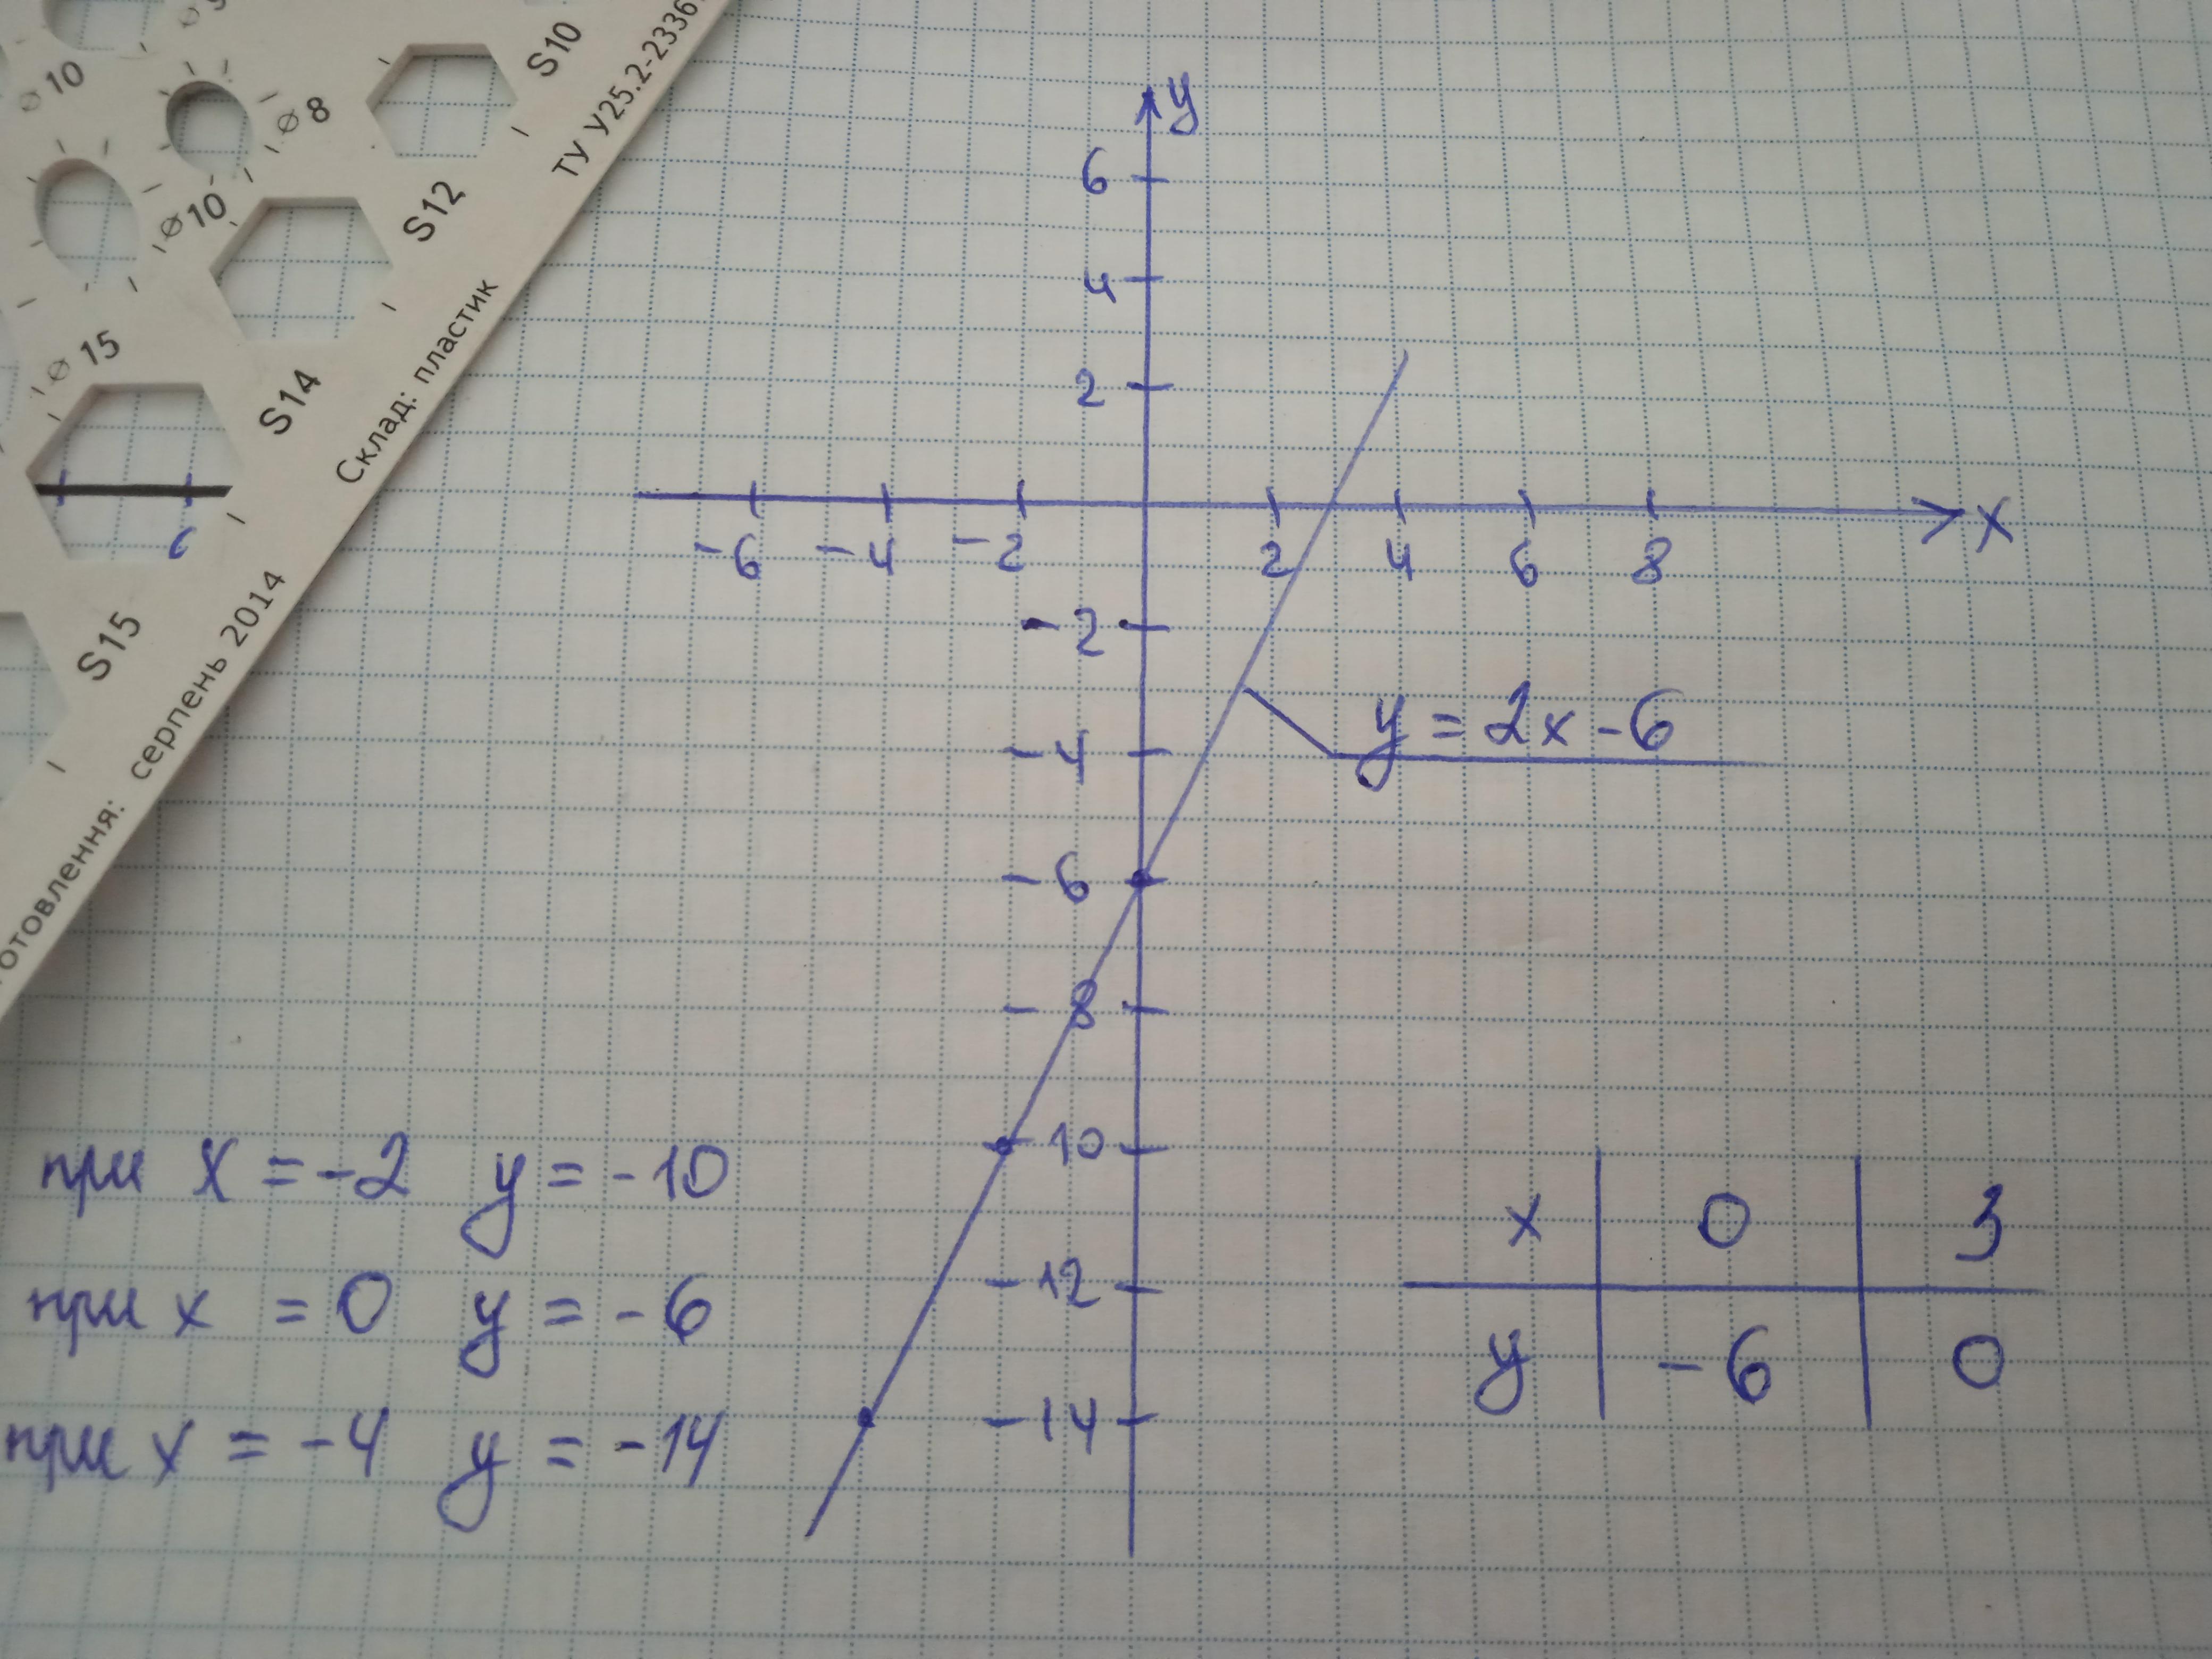 ⌀ 10
⌀ 8
S10
ТУ У25.2-2336
⌀10
S12
⌀ 15
S14
Склад: пластик
S15
отовлення: серпень 2014
y
6
4
2
-6 -4 -2 2 4 6 8 x
-2
-4
y = 2x - 6
-6
-8
-10
-12
-14
при x = -2 y = -10
при x = 0 y = -6
при x = -4 y = -14
x 0 3
y -6 0